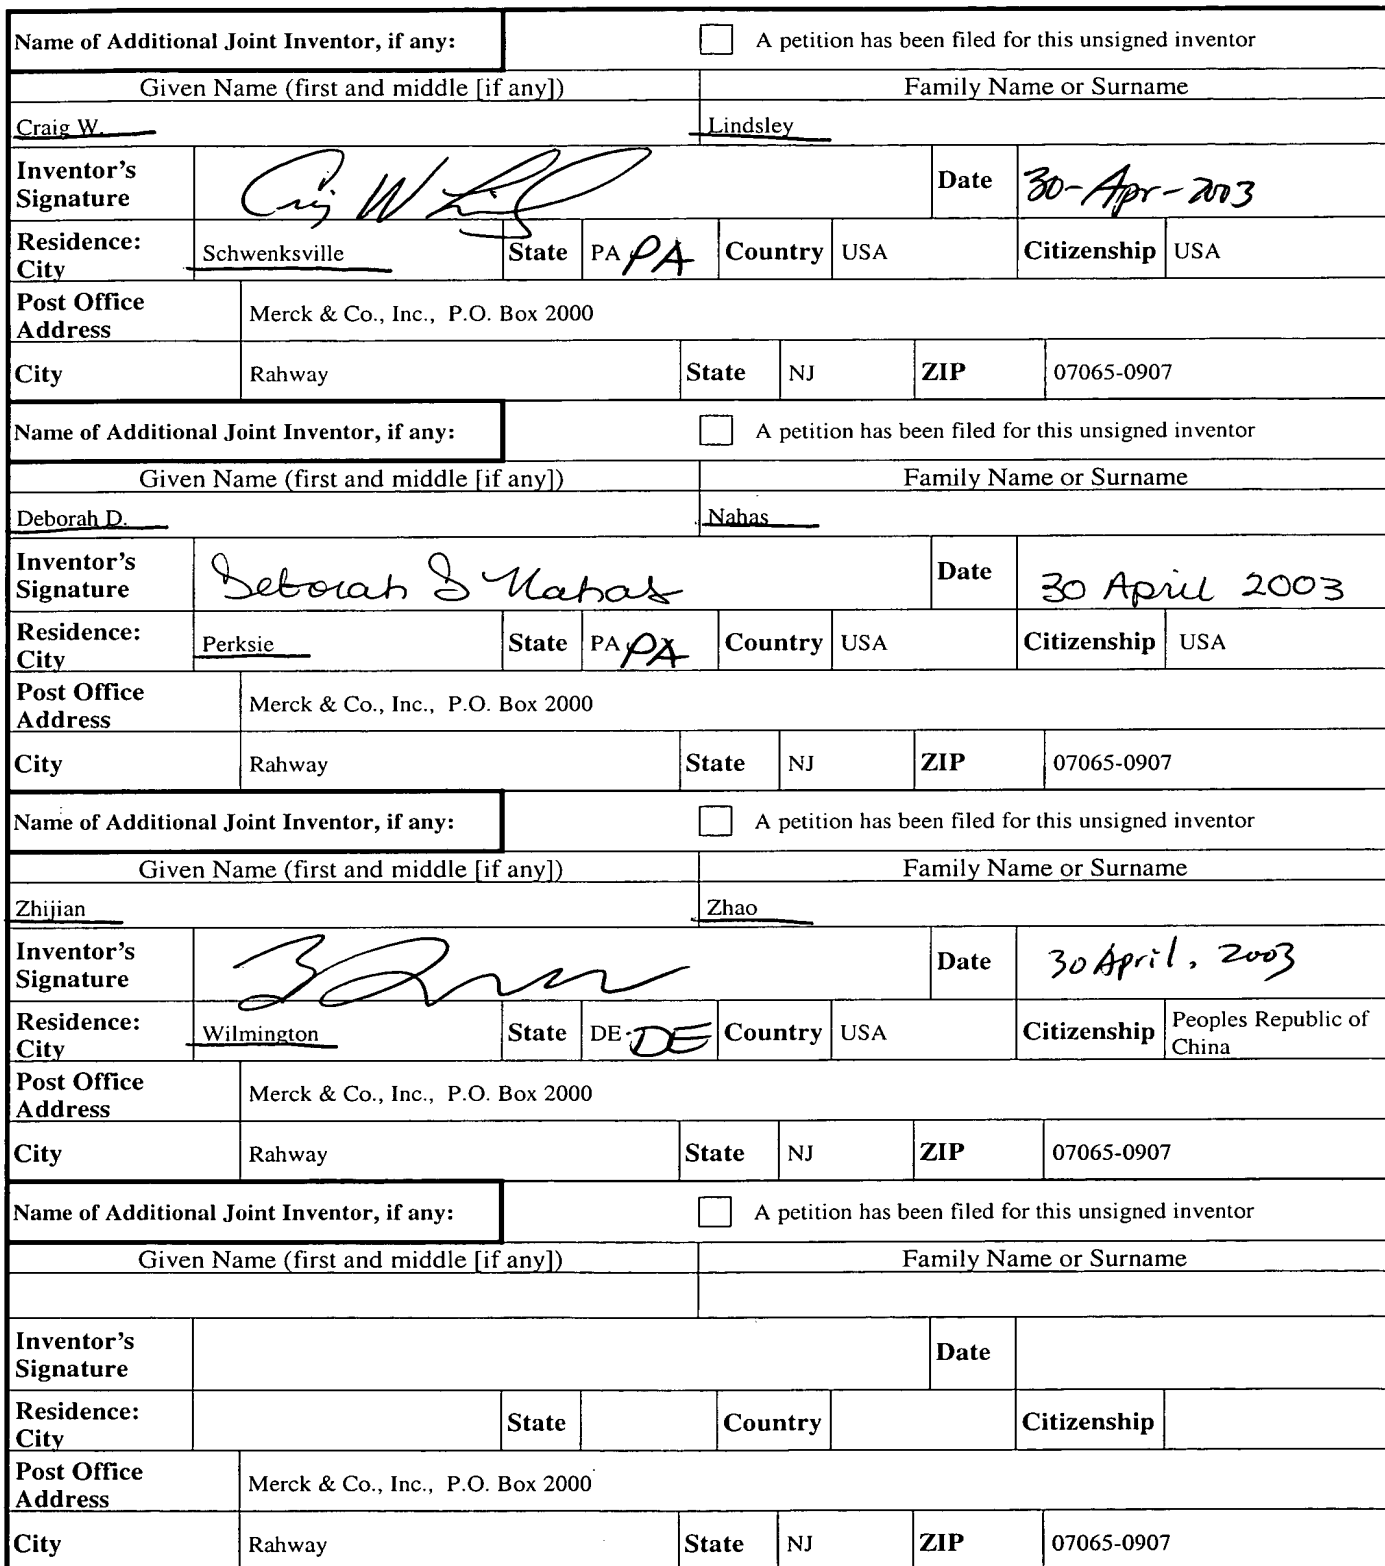 Name of Additional Joint Inventor, if any: A petition has been filed for this unsigned inventor
Given Name (first and middle [if any]) Family Name or Surname
Craig W. Lindsley
Inventor's Signature Craig W Lindsley Date 30-Apr-2003
Residence: City Schwenksville State PA PA Country USA Citizenship USA
Post Office Address Merck & Co., Inc., P.O. Box 2000
City Rahway State NJ ZIP 07065-0907
Name of Additional Joint Inventor, if any: A petition has been filed for this unsigned inventor
Given Name (first and middle [if any]) Family Name or Surname
Deborah D. Nahas
Inventor's Signature Deborah D Nahas Date 30 April 2003
Residence: City Perksie State PA PA Country USA Citizenship USA
Post Office Address Merck & Co., Inc., P.O. Box 2000
City Rahway State NJ ZIP 07065-0907
Name of Additional Joint Inventor, if any: A petition has been filed for this unsigned inventor
Given Name (first and middle [if any]) Family Name or Surname
Zhijian Zhao
Inventor's Signature Date 30 April, 2003
Residence: City Wilmington State DE DE Country USA Citizenship Peoples Republic of China
Post Office Address Merck & Co., Inc., P.O. Box 2000
City Rahway State NJ ZIP 07065-0907
Name of Additional Joint Inventor, if any: A petition has been filed for this unsigned inventor
Given Name (first and middle [if any]) Family Name or Surname
Inventor's Signature Date
Residence: City State Country Citizenship
Post Office Address Merck & Co., Inc., P.O. Box 2000
City Rahway State NJ ZIP 07065-0907